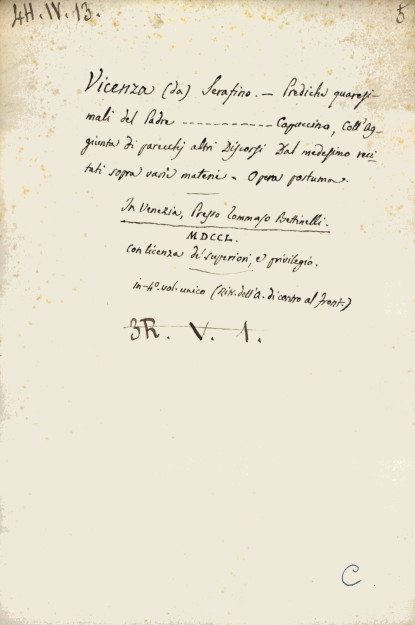 4H. IV. 13.
5
Vicenza (da) Serafino. — Prediche quaresi-
mali del Padre ------------ Capuccino, Coll'Ag-
giunta di parecchj altri Discorsi Dal medesimo reci-
tati sopra varie materie - Opera postuma.
In Venezia, Presso Tommaso Bettinelli.
MDCCL.
Con licenza de' superiori, e privilegio.
in-4º. vol. unico (Ritr. dell'A. di contro al front.)
3R. V. 1.
C